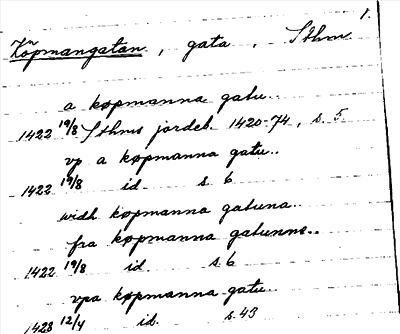 1.
Köpmangatan, gata, Sthm
a køpmanna gatu..
1422 19/8 Sthms jordeb. 1420-74, s. 5
vp a køpmanna gatu..
1422 19/8 id. s. 6
widh køpmanna gatuna..
fra køpmanna gatunne..
1422 19/8 id. s. 6
vpa køpmanna gatu..
1423 12/4 id. s. 43